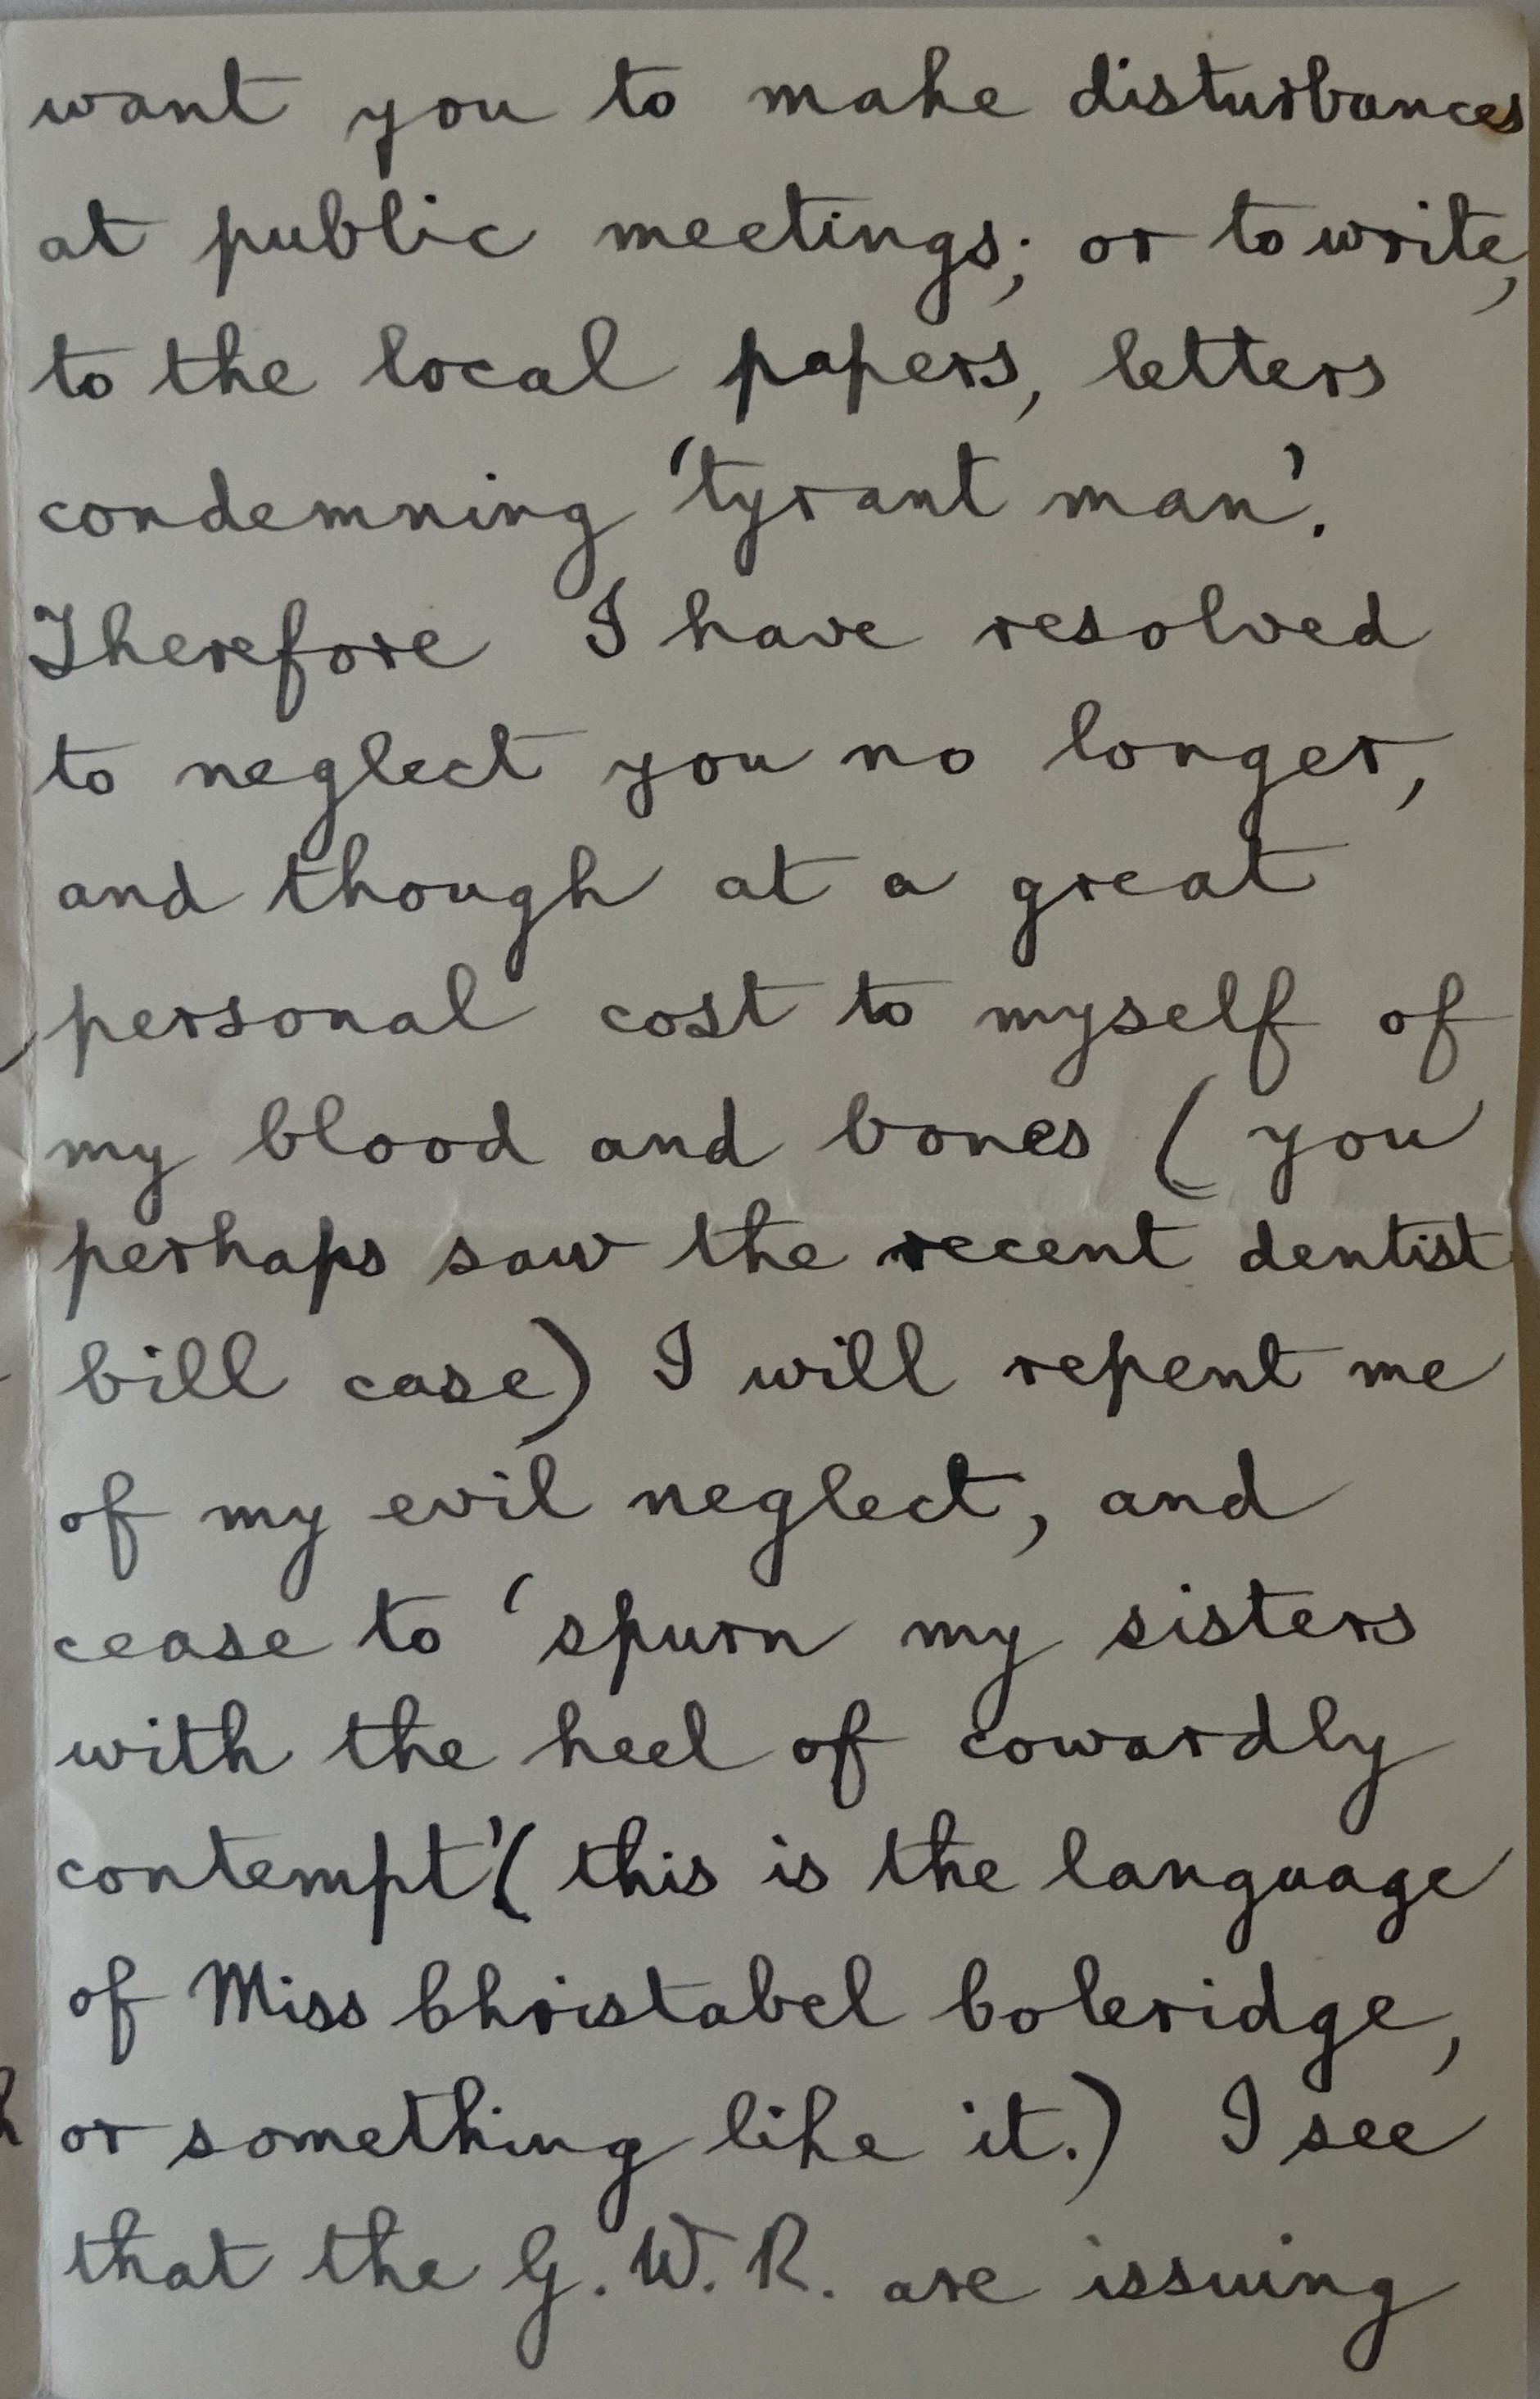 want you to make disturbances
at public meetings; or to write,
to the local papers, letters
condemning 'tyrant man'.
Therefore I have resolved
to neglect you no longer,
and though at a great
personal cost to myself of
my blood and bones ( you
perhaps saw the recent dentist
bill case) I will repent me
of my evil neglect, and
cease to 'spurn my sisters
with the heel of cowardly
contempt' ( this is the language
of Miss Christabel Coleridge,
or something like it.) I see
that the G. W. R. are issuing